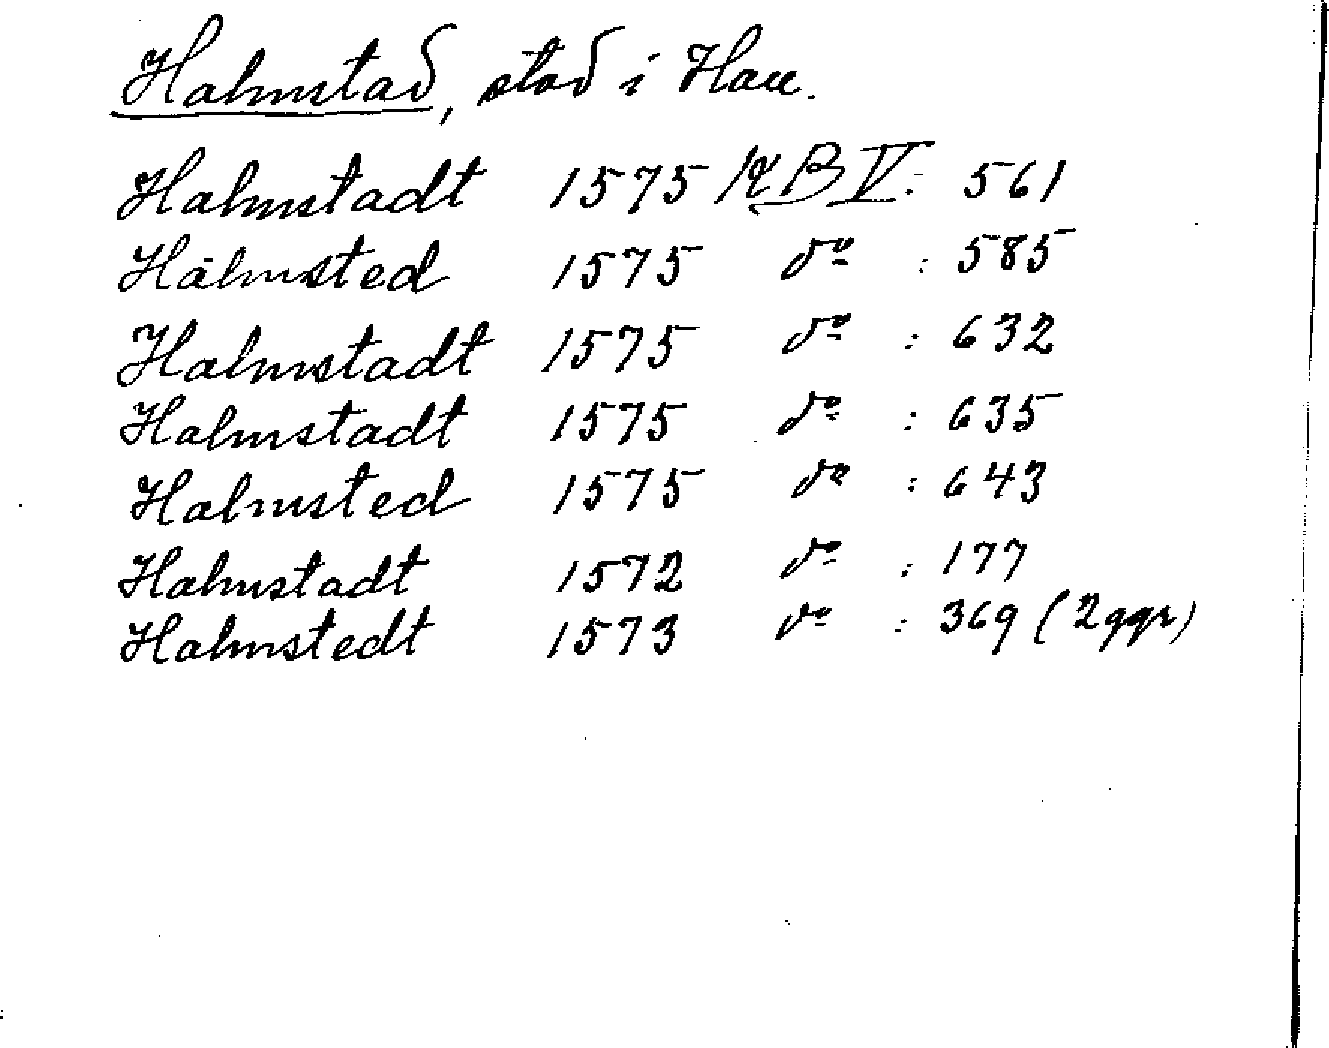 Halmstad, stad i Hall.
Halmstadt 1575 KB V: 561
Halmsted 1575 do : 585
Halmstadt 1575 do : 632
Halmstadt 1575 do : 635
Halmsted 1575 do : 643
Halmstadt 1572 do : 177
Halmstedt 1573 do : 369 (2ggr)